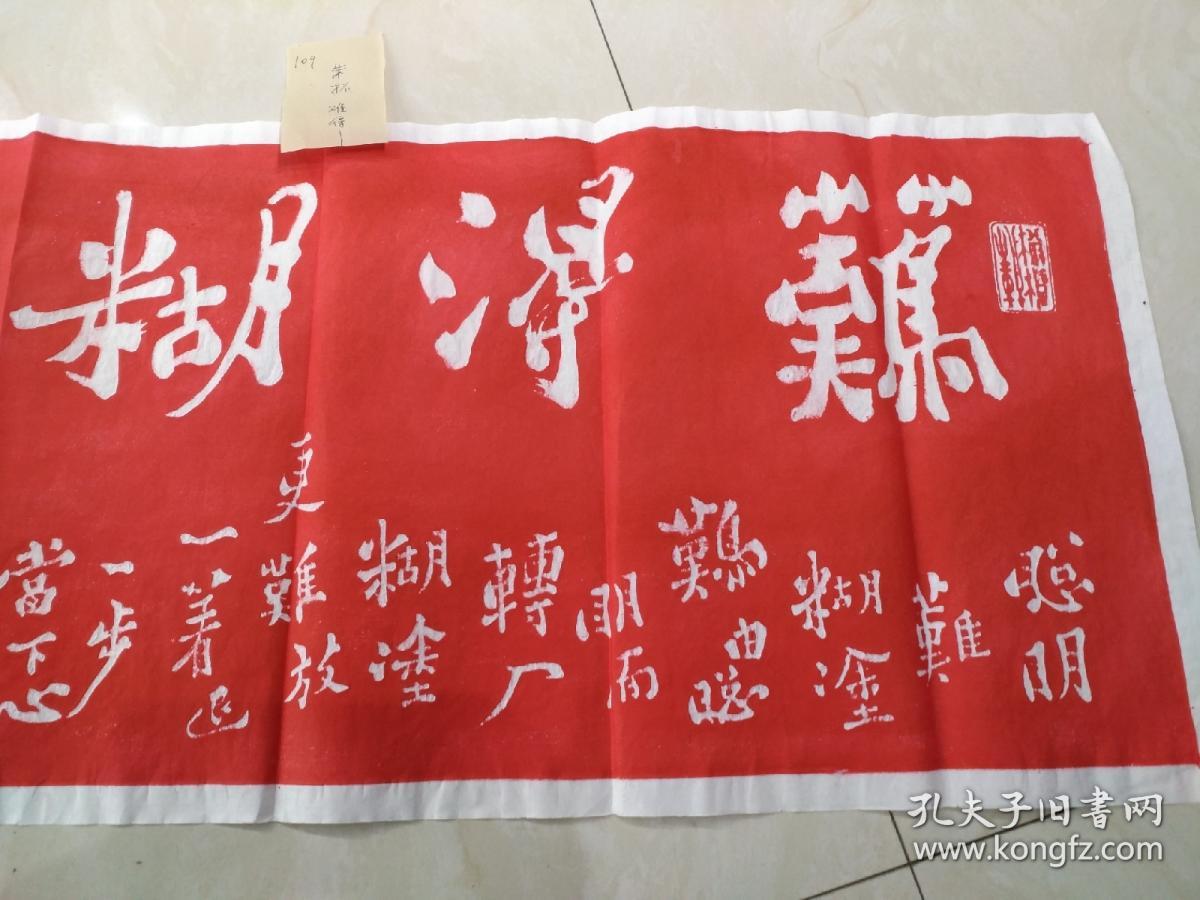 難得糊
聰明
難
糊塗
難由聰
明而
轉厂
糊塗
更難放
一著退
一步
當下心
109
難得
孔夫子旧書网
www.kongfz.com